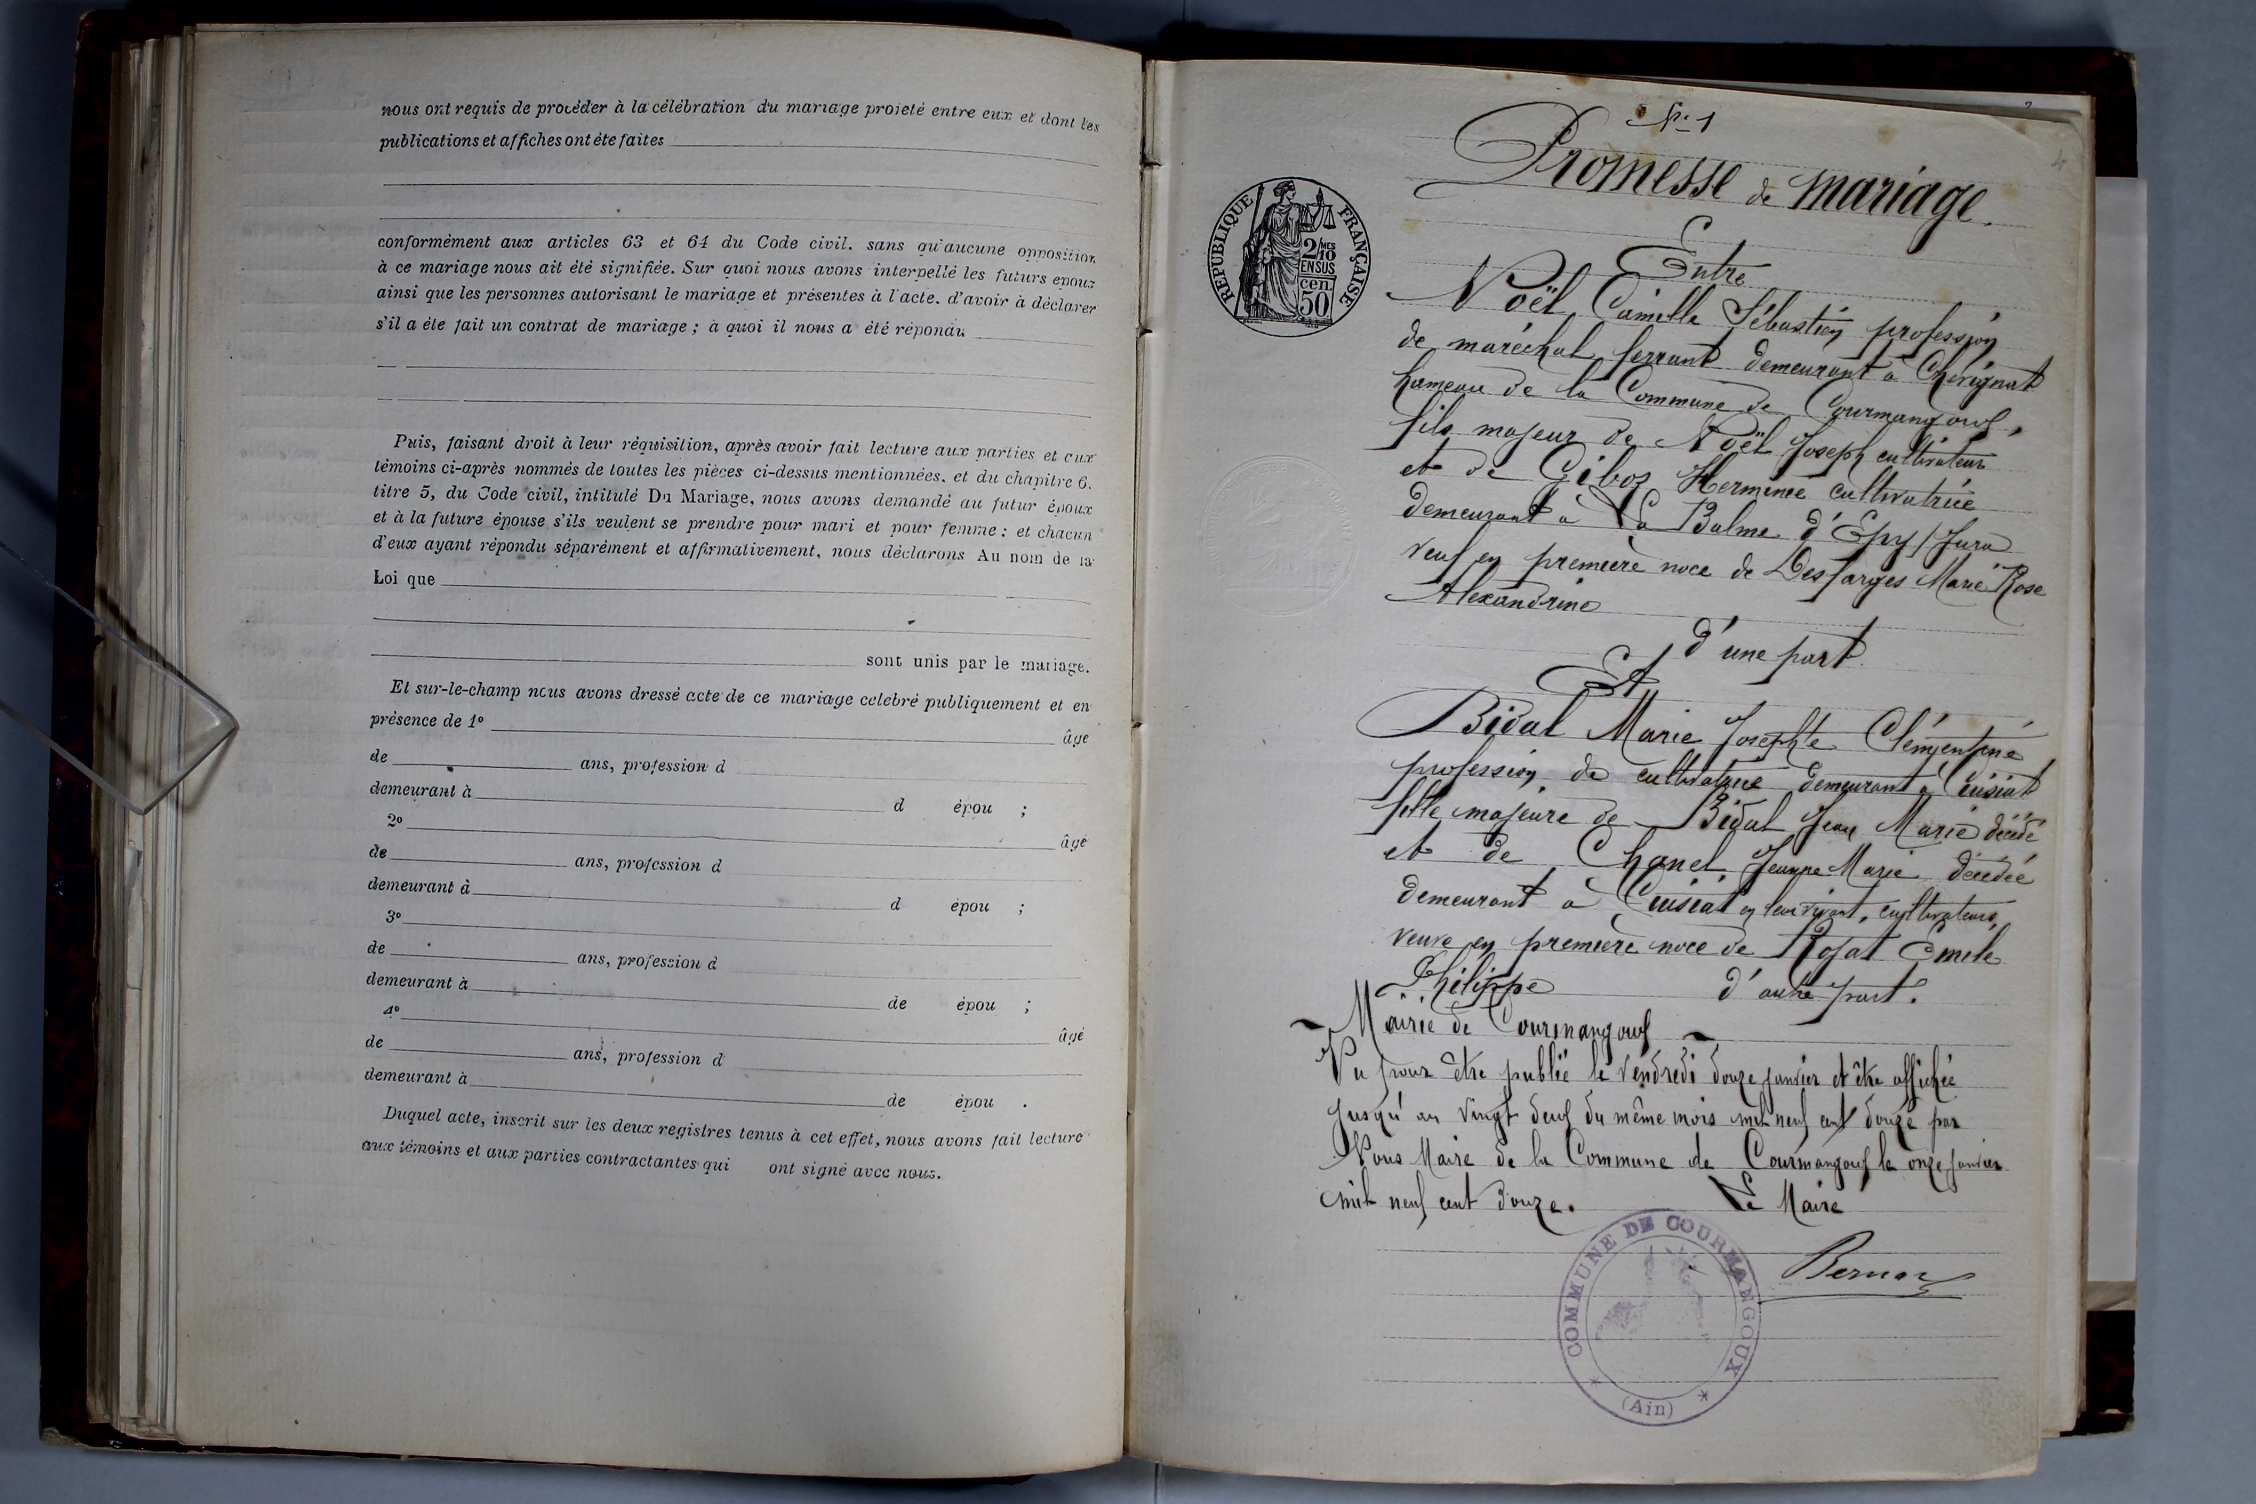 nous ont requis de procéder à la célébration du mariage projeté entre eux et dont les
publications et affiches ont été faites
conformément aux articles 63 et 64 du Code civil. sans qu'aucune opposition
à ce mariage nous ait été signifiée. Sur quoi nous avons interpellé les futurs epoux
ainsi que les personnes autorisant le mariage et présentes à l'acte. d'avoir à déclarer
s'il a été fait un contrat de mariage ; à quoi il nous a été répondu
Puis, faisant droit à leur réquisition, après avoir fait lecture aux parties et aux
témoins ci-après nommés de toutes les pièces ci-dessus mentionnées. et du chapitre 6.
titre 5, du Code civil, intitulé Du Mariage, nous avons demandé au futur époux
et à la future épouse s'ils veulent se prendre pour mari et pour femme : et chacun
d'eux ayant répondu séparément et affirmativement, nous déclarons Au nom de la
Loi que
sont unis par le mariage.
Et sur-le-champ nous avons dressé acte de ce mariage celebré publiquement et en
présence de 1º âgé
de ans, profession d
demeurant à d épou ;
2º âgé
de ans, profession d
demeurant à d épou ;
3º
de ans, profession d
demeurant à de épou ;
4º âgé
de ans, profession d
demeurant à de épou .
Duquel acte, inscrit sur les deux registres tenus à cet effet, nous avons fait lecture
aux témoins et aux parties contractantes qui ont signé avec nous.
Nº 1
4
Promesse de mariage
RÉPUBLIQUE FRANÇAISE
2/10 MES
EN SUS
50 cen.
Entre
Noël Camille Sébastien profession
de maréchal ferrant demeurant à Chevignat
hameau de la Commune de Courmangoux,
fils majeur de Noël Joseph cultivateur
et de Giboz Herminée cultivatrice
demeurant à La Balme d'Epy / Jura
veuf en première noce de Desfarges Marie Rose
Alexandrine
d'une part
Et
Bidal Marie Josephte Clémentine
profession de cultivatrice demeurant à Cuisiat
fille majeure de Bidal Jean Marie décédé
et de Chanel Jeanne Marie décédée
demeurant à Cuisiat en leur vivant, cultivateurs,
veuve en première noce de Rojat Emile
Philippe d'autre part.
Mairie de Courmangoux
Vu pour être publié le vendredi douze janvier et être affichée
jusqu'au vingt deux du même mois mil neuf cent douze par
Nous Maire de la Commune de Courmangoux le onze janvier
mil neuf cent douze. Le Maire
COMMUNE DE COURMANGOUX
(Ain)